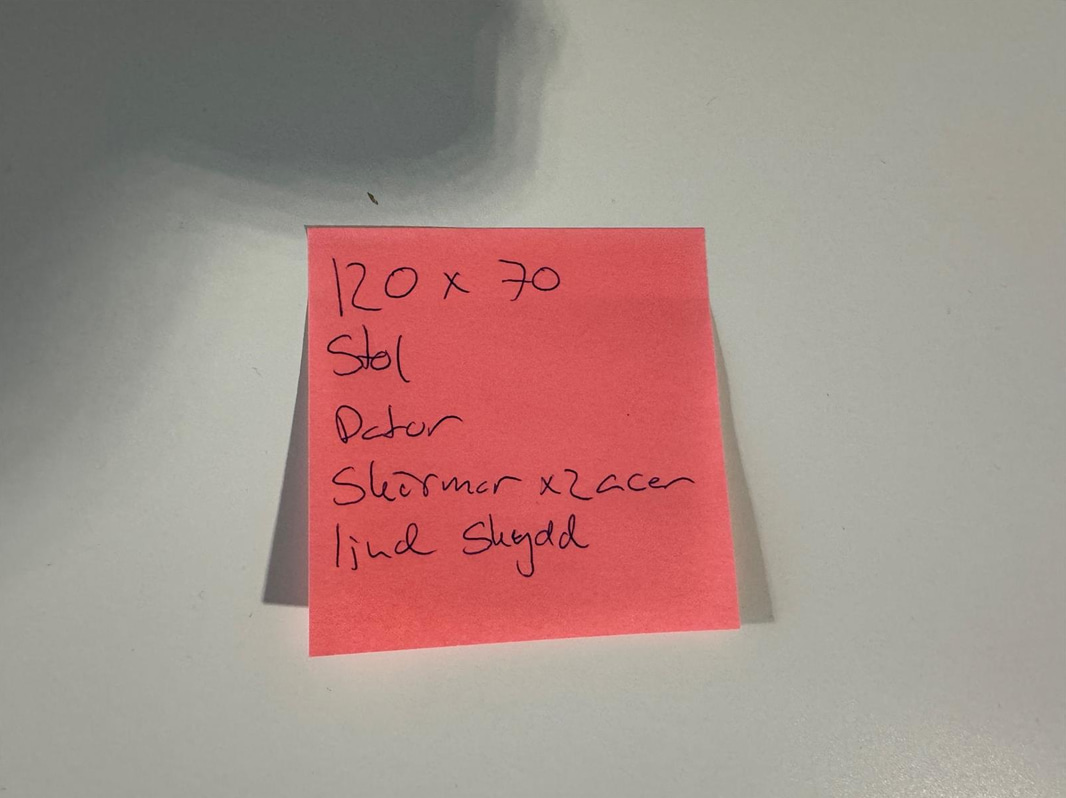 120 x 70
Stol
Dator
Skärmar x2 acer
ljud skydd